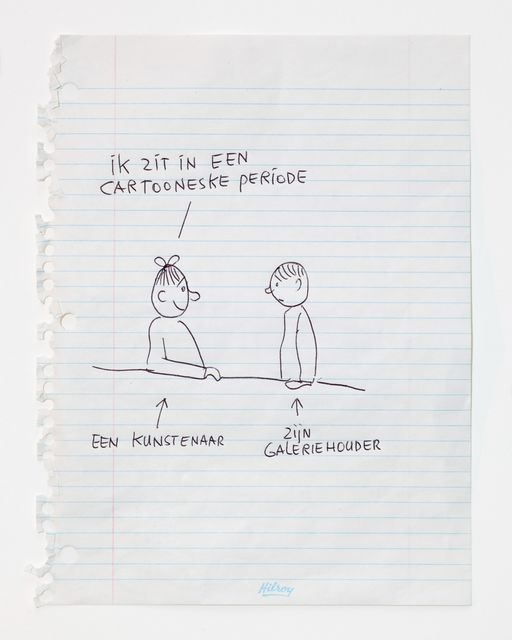 iK ZiT iN EEN
CARTOONESKE PERiODE
EEN KUNSTENAAR
ZijN
GALERIEHOUDER
Hilroy